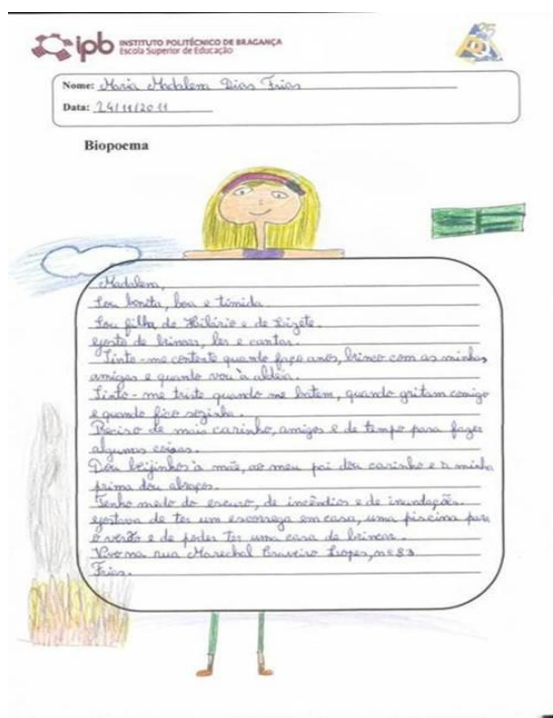 ipb INSTITUTO POLITÉCNICO DE BRAGANÇA
Escola Superior de Educação
Nome: Maria Madalena Dias Frias
Data: 24/11/2011
Biopoema
Madalena,
Sou bonita, boa e tímida.
Sou filha de Hilário e de Lizete.
Gosto de brincar, ler e cantar.
Sinto-me contente quando faço anos, brinco com as minhas
amigas e quando vou à aldeia.
Sinto-me triste quando me batem, quando gritam comigo
e quando fico sozinha.
Preciso de mais carinho, amigos e de tempo para fazer
algumas coisas.
Dou beijinhos à mãe, ao meu pai dou carinho e à minha
prima dou abraços.
Tenho medo do escuro, de incêndios e de inundações.
Gostava de ter um escorrega em casa, uma piscina para
o verão e de poder ter uma casa de brincar.
Vivo na rua Marechal Craveiro Lopes, nº 83
Frias.